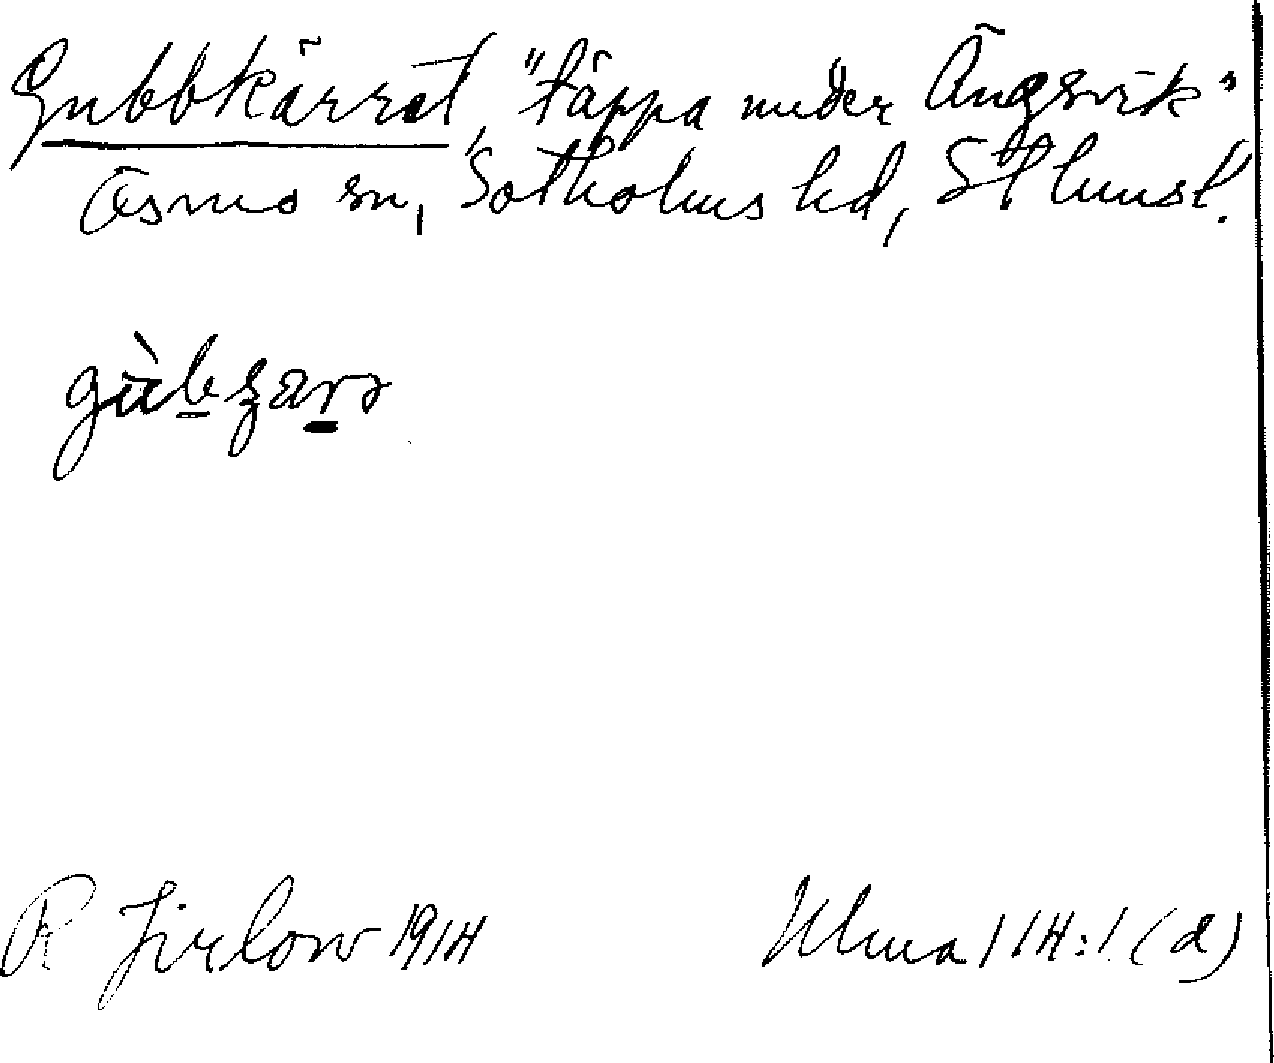 Gubbkärret, "täppa under Ängsvik"
Ösmo sn, Sotholms hd, Sthmsl.
R Jirlow 1914
Ulma 114:1 (d)